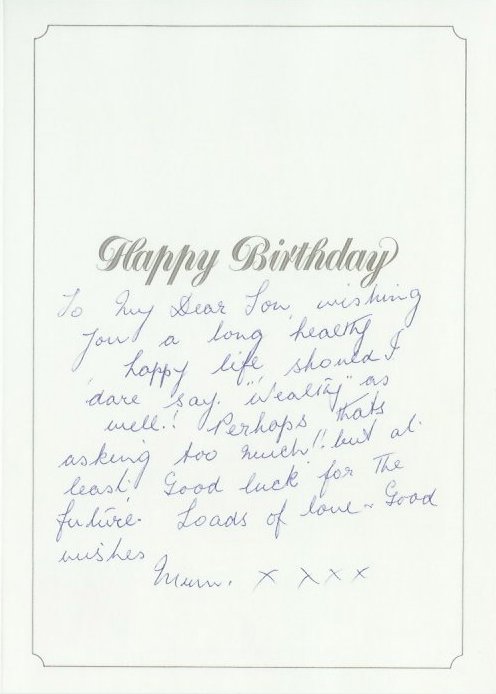 Happy Birthday
To My Dear Son, wishing
you a long healthy
happy life should I
dare say. "Wealthy" as
well.! Perhaps thats
asking too much!! but at
least Good luck for The
future. Loads of love ~ Good
wishes
Mum. x x x x